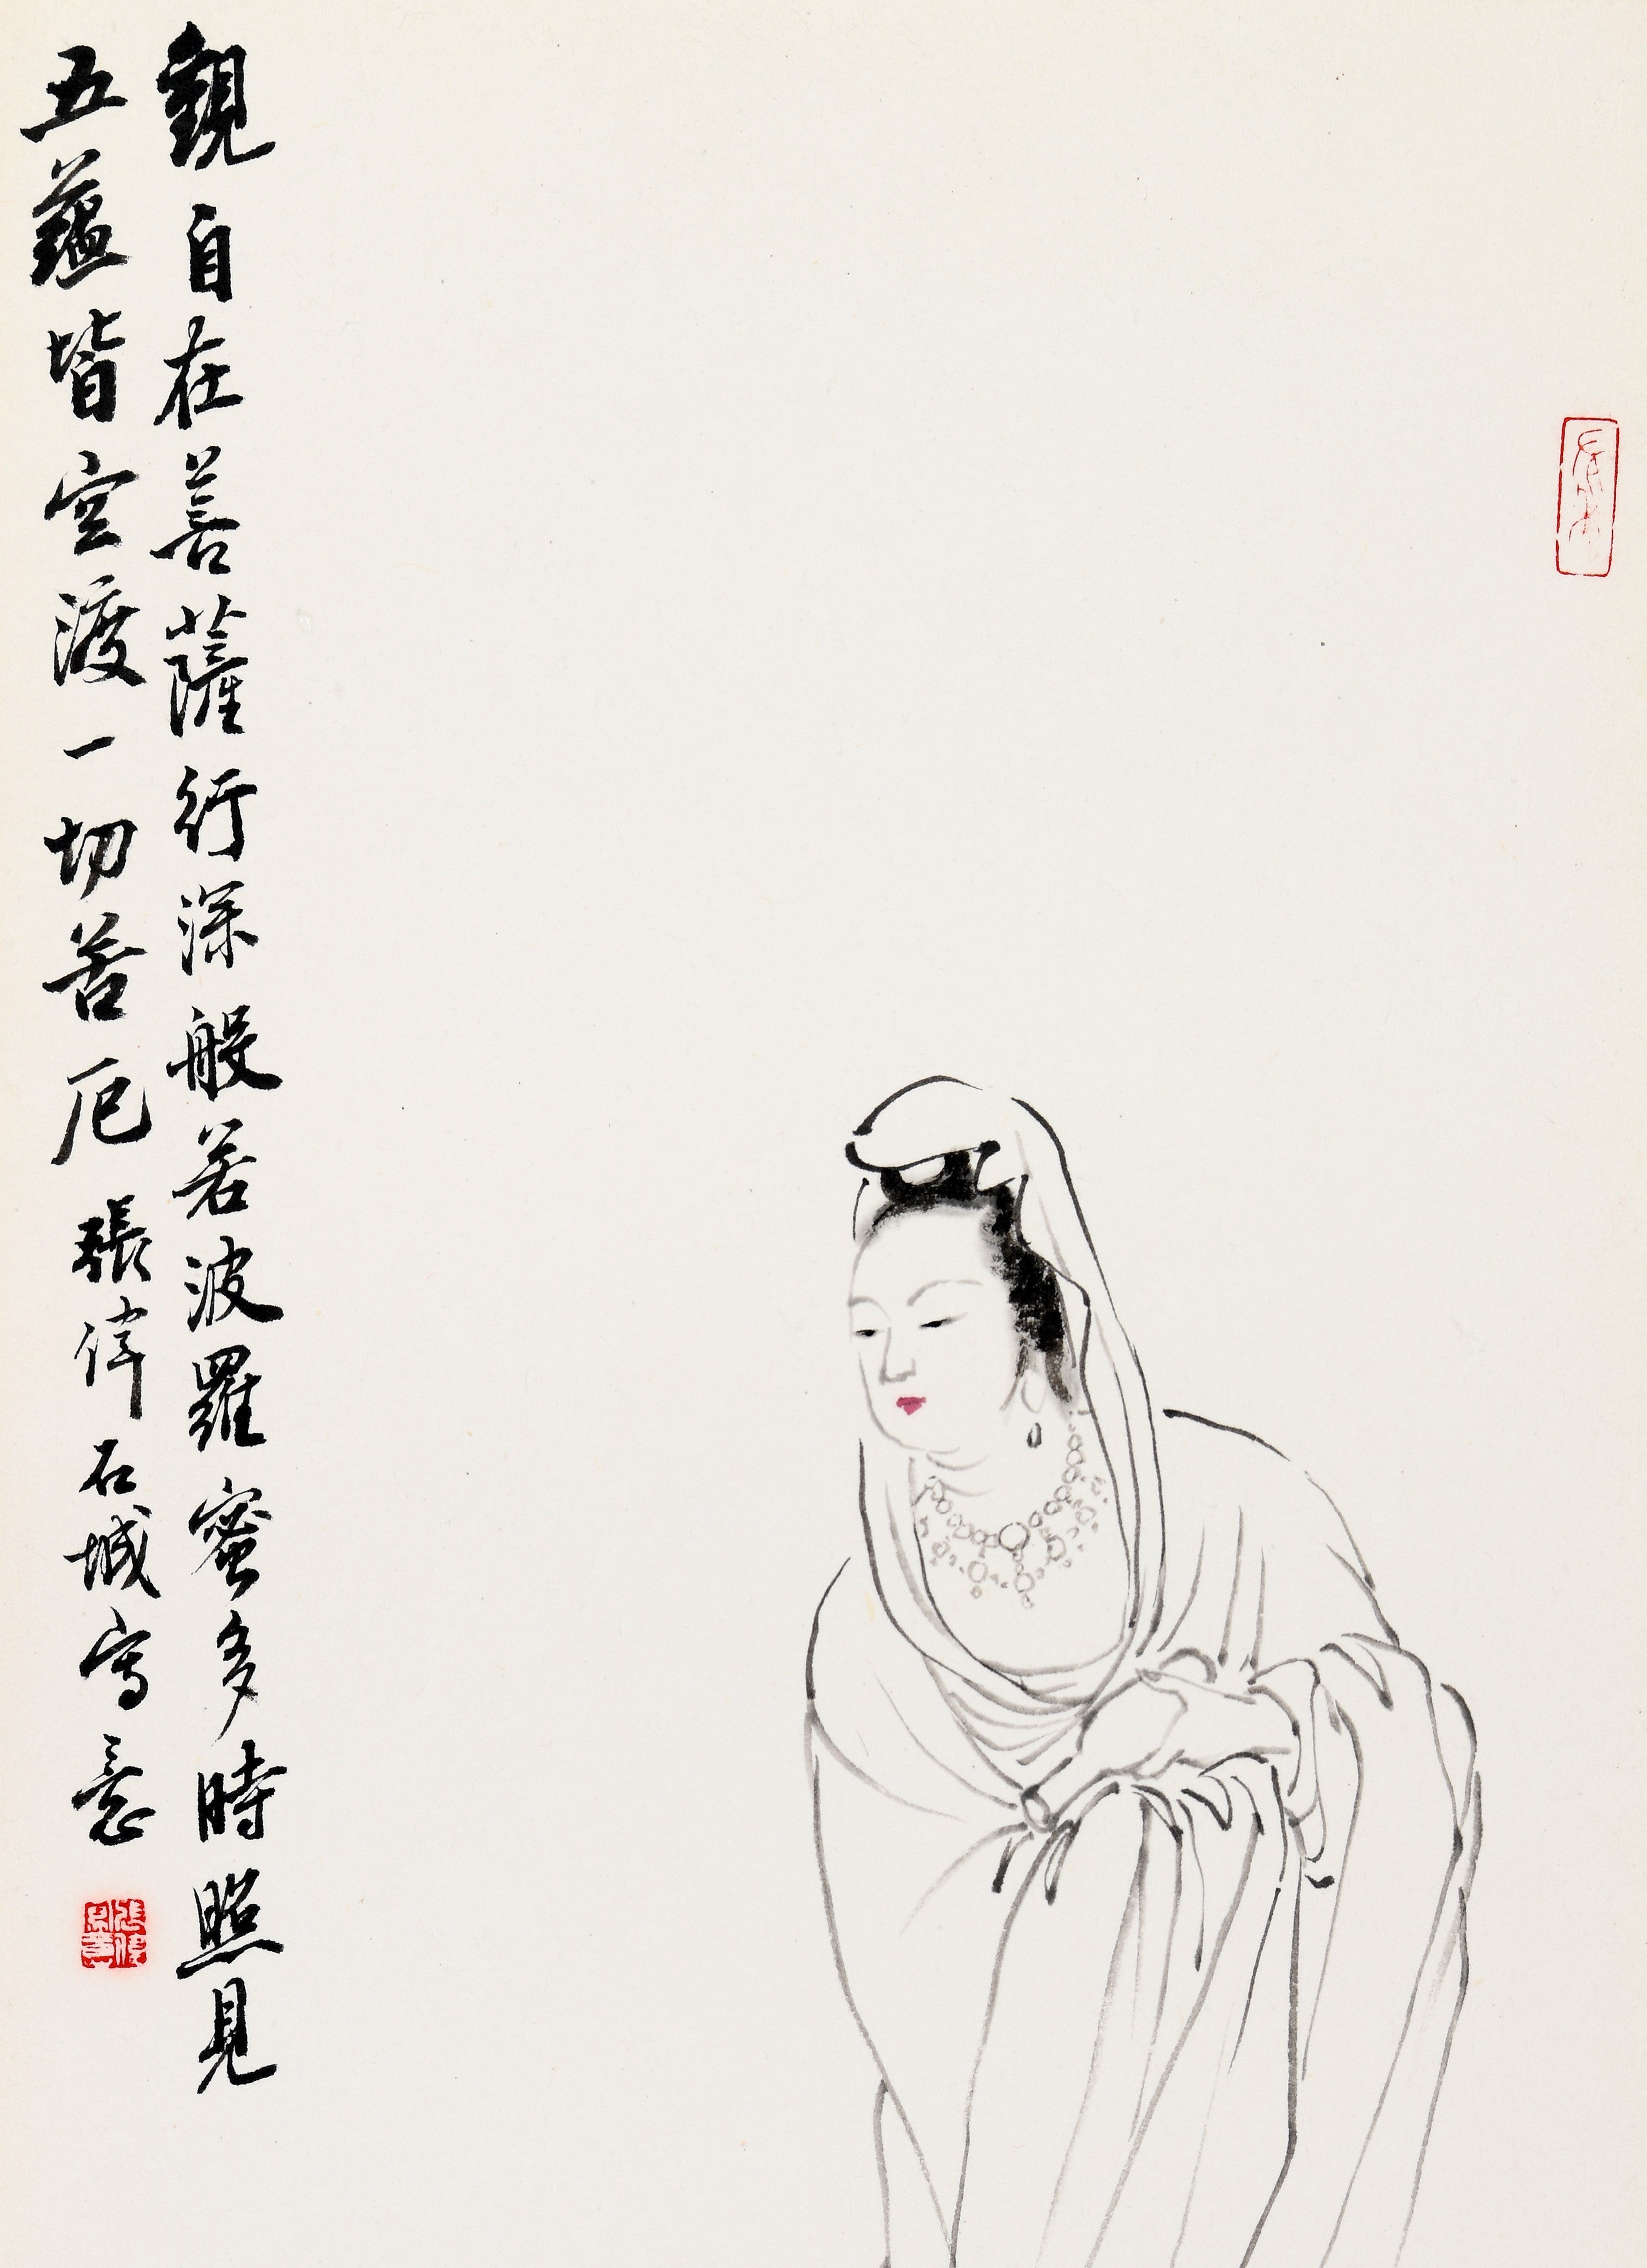 觀自在菩薩行深般若波羅蜜多時照見
五蘊皆空渡一切苦厄 張偉石城寫意